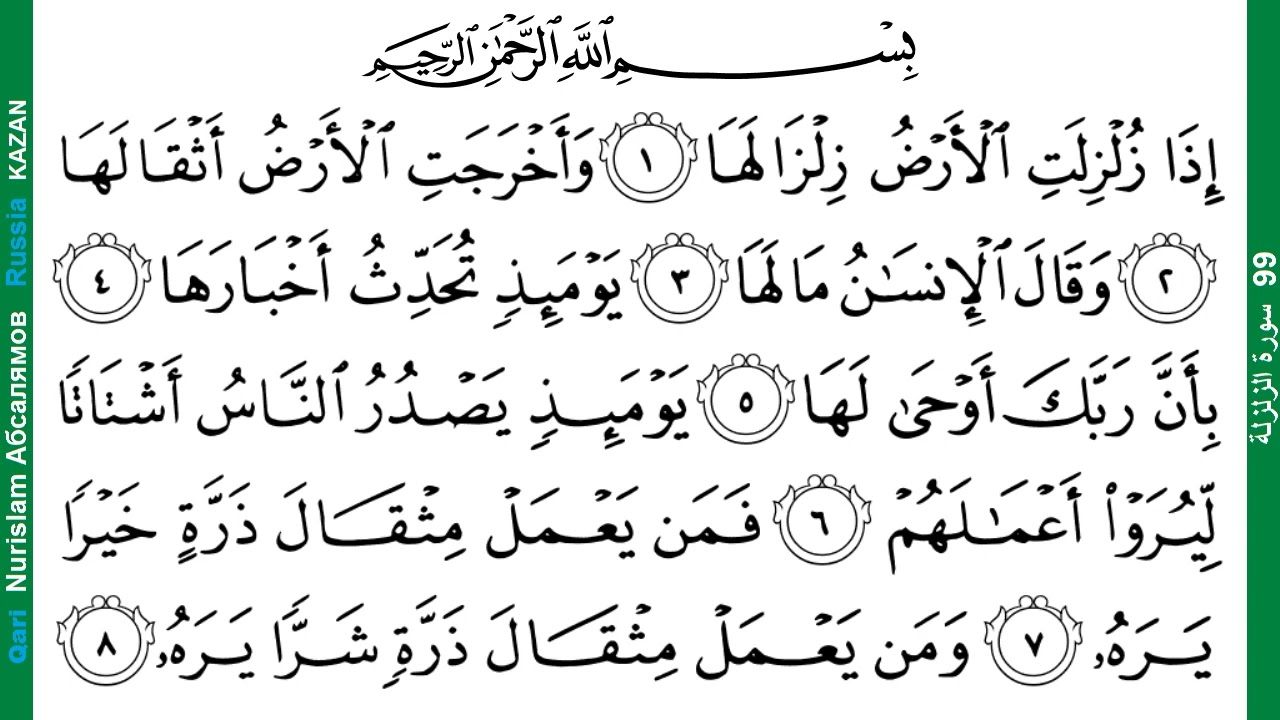 بِسْمِ ٱللَّهِ ٱلرَّحْمَٰنِ ٱلرَّحِيمِ
إِذَا زُلْزِلَتِ ٱلْأَرْضُ زِلْزَالَهَا ١ وَأَخْرَجَتِ ٱلْأَرْضُ أَثْقَالَهَا
٢ وَقَالَ ٱلْإِنسَٰنُ مَا لَهَا ٣ يَوْمَئِذٍ تُحَدِّثُ أَخْبَارَهَا ٤
بِأَنَّ رَبَّكَ أَوْحَىٰ لَهَا ٥ يَوْمَئِذٍ يَصْدُرُ ٱلنَّاسُ أَشْتَاتًا
لِّيُرَوْا۟ أَعْمَٰلَهُمْ ٦ فَمَن يَعْمَلْ مِثْقَالَ ذَرَّةٍ خَيْرًا
يَرَهُۥ ٧ وَمَن يَعْمَلْ مِثْقَالَ ذَرَّةٍ شَرًّا يَرَهُۥ ٨
Qari Nurislam Абсалямов Russia KAZAN
99 سورة الزلزلة